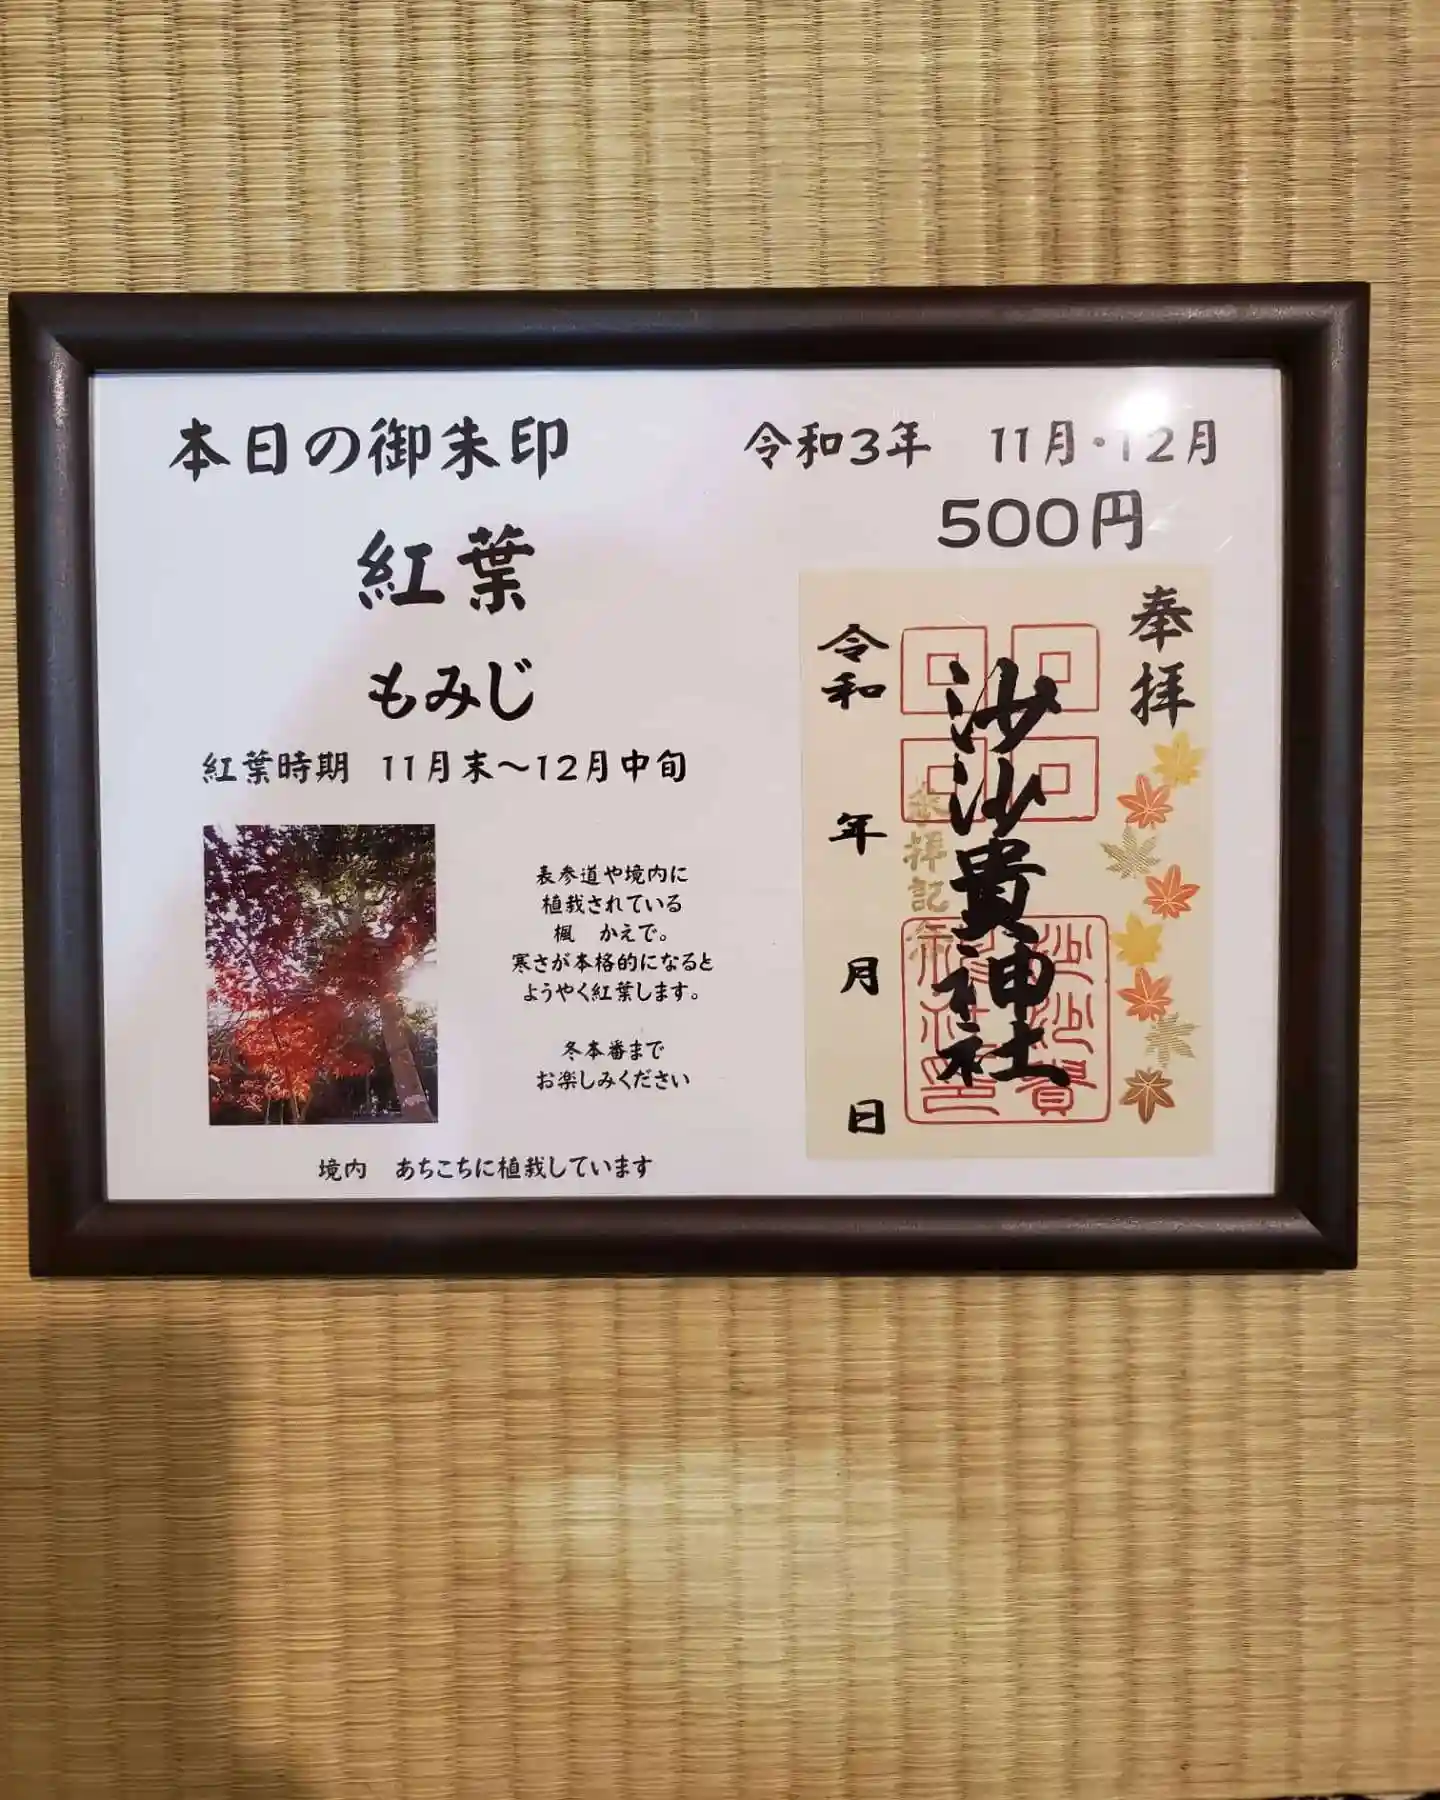 本日の御朱印
紅葉
もみじ
紅葉時期 11月末～12月中旬
表参道や境内に
植栽されている
楓 かえで。
寒さが本格的になると
ようやく紅葉します。
冬本番まで
お楽しみください
境内 あちこちに植栽しています
令和3年 11月・12月
500円
奉拝
沙沙貴神社
令和 年 月 日